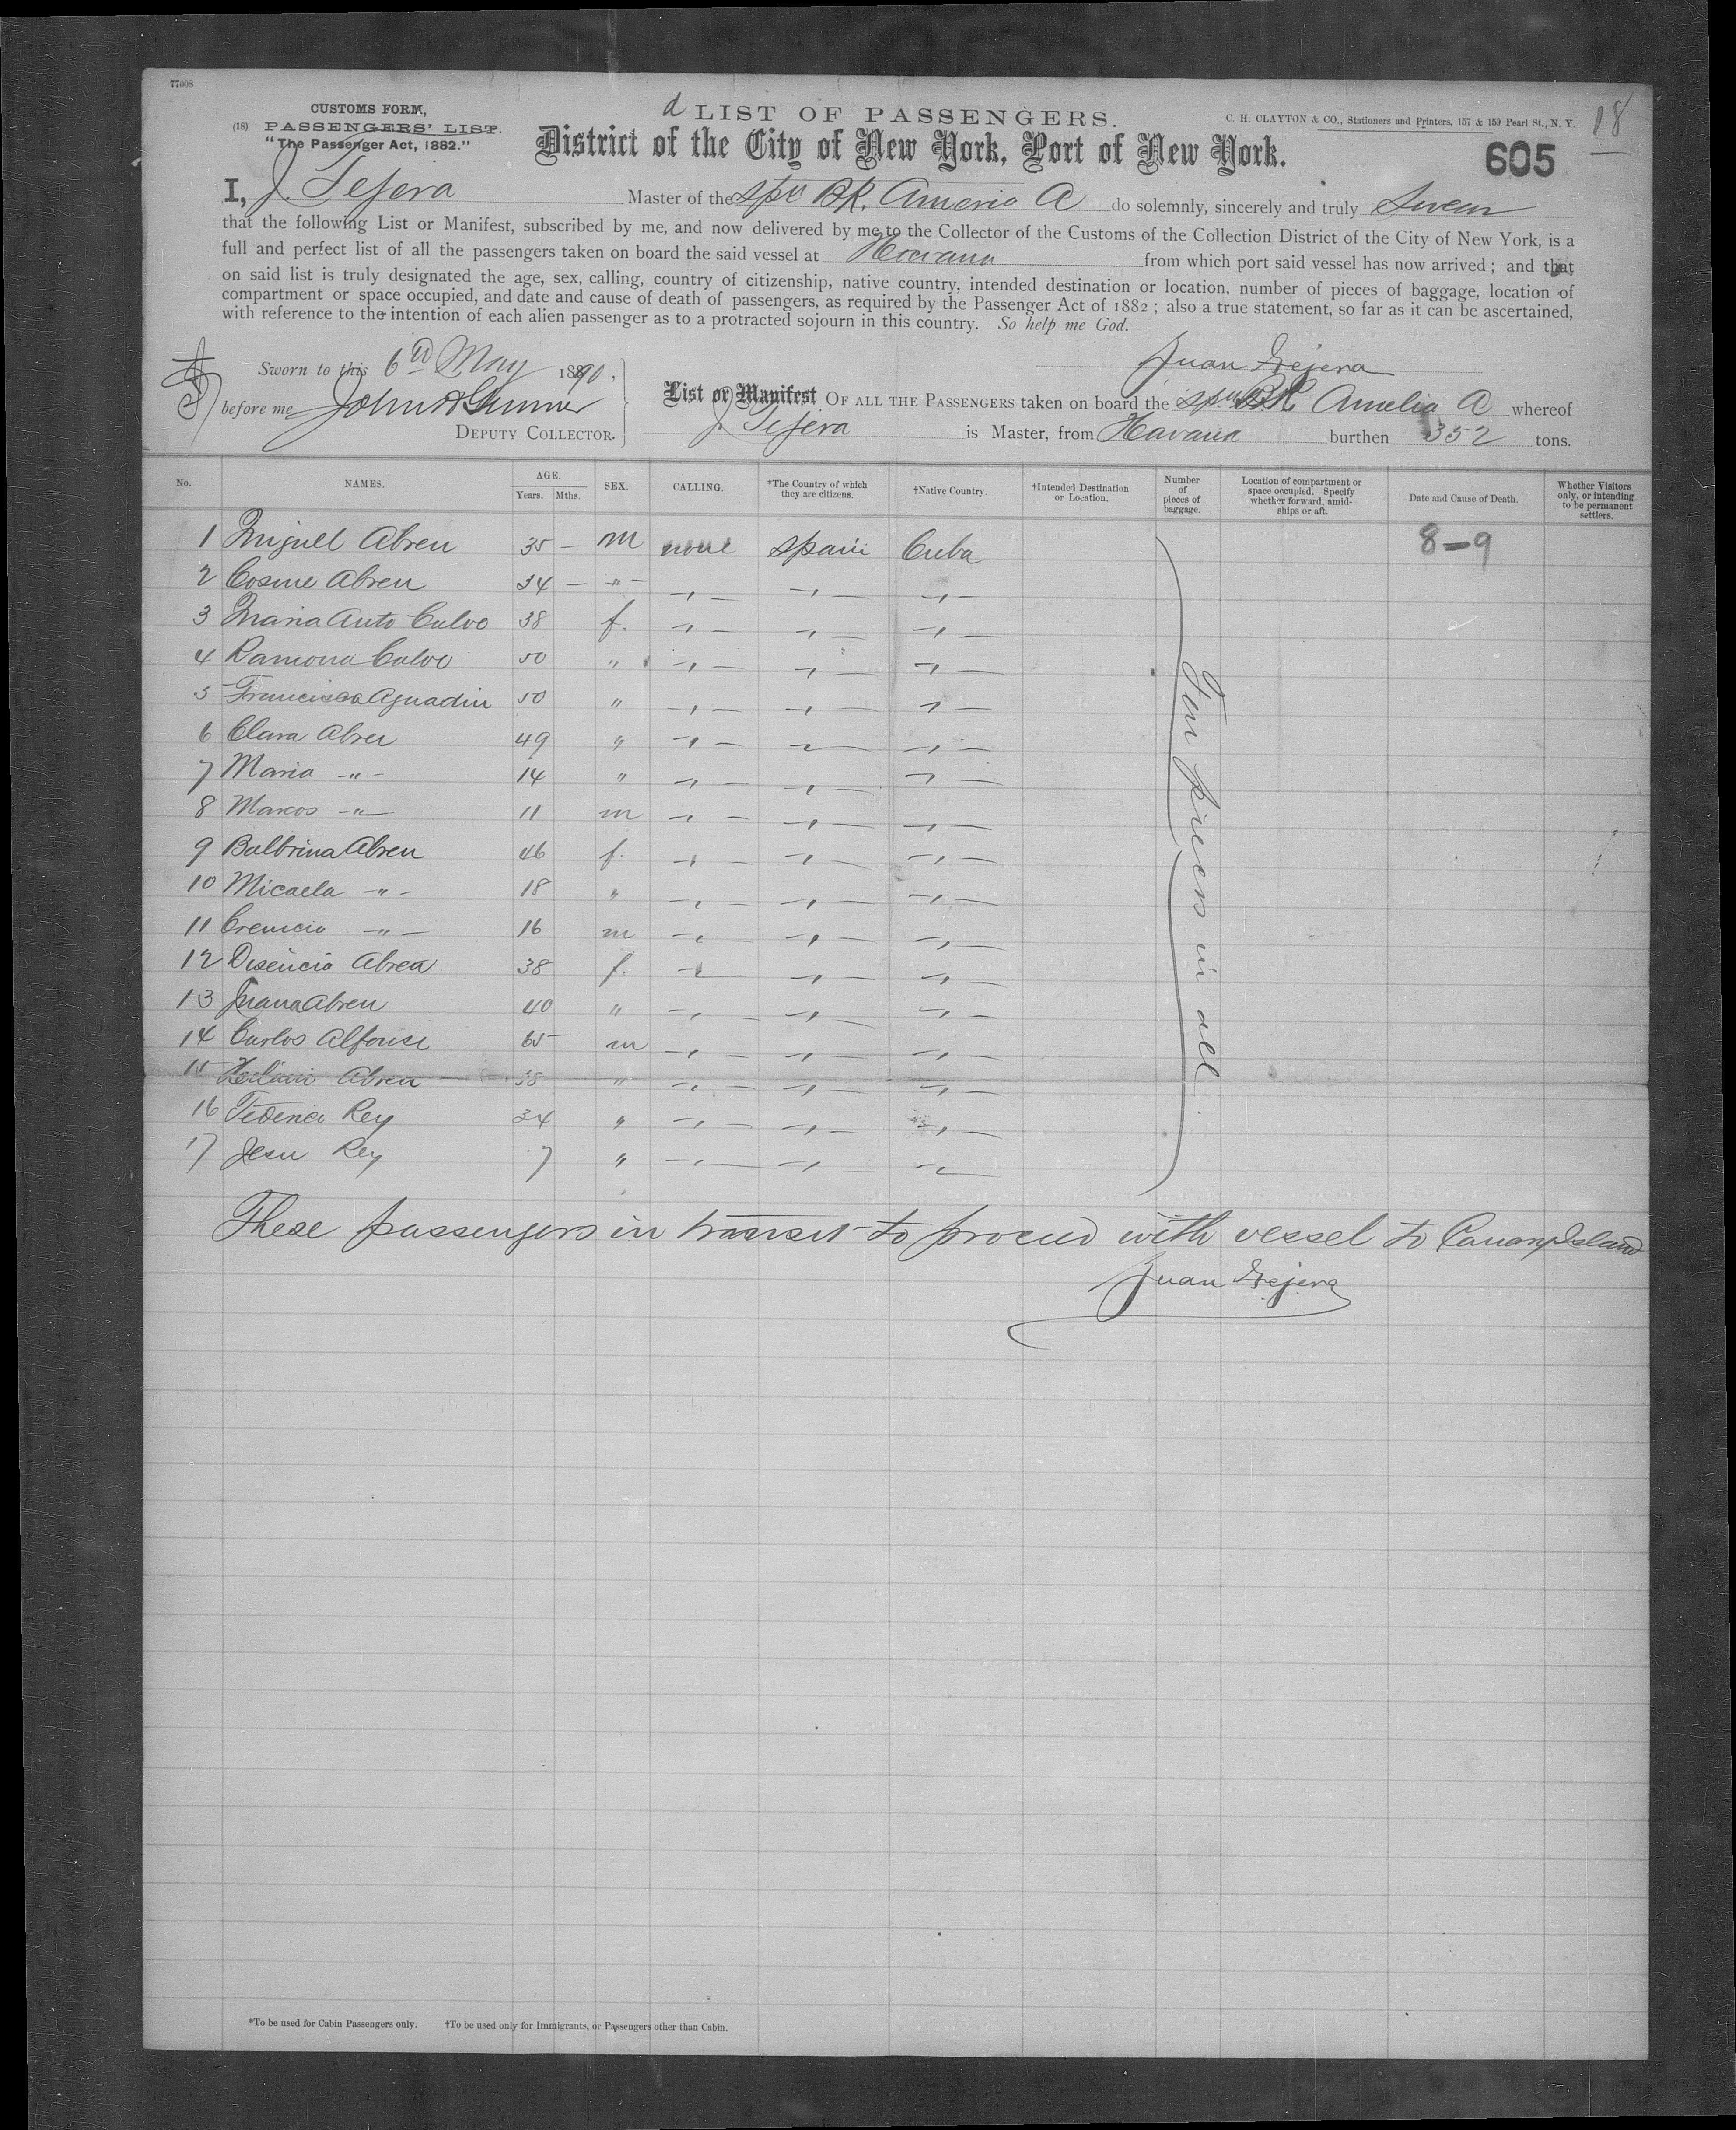 77008
CUSTOMS FORM,
(18) PASSENGERS' LIST.
"The Passenger Act, 1882."
d LIST OF PASSENGERS.
District of the City of New York, Port of New York.
C. H. CLAYTON & CO., Stationers and Printers, 157 & 159 Pearl St., N. Y.
18
605
I, J. Tejera Master of the Spn BK. Ameria A do solemnly, sincerely and truly Swear
that the following List or Manifest, subscribed by me, and now delivered by me to the Collector of the Customs of the Collection District of the City of New York, is a
full and perfect list of all the passengers taken on board the said vessel at Havana from which port said vessel has now arrived; and that
on said list is truly designated the age, sex, calling, country of citizenship, native country, intended destination or location, number of pieces of baggage, location of
compartment or space occupied, and date and cause of death of passengers, as required by the Passenger Act of 1882; also a true statement, so far as it can be ascertained,
with reference to the intention of each alien passenger as to a protracted sojourn in this country. So help me God.
Juan Tejera
Sworn to this 6th May 1890,
before me John
DEPUTY COLLECTOR.
List or Manifest OF ALL THE PASSENGERS taken on board the Spn BK. Amelia A whereof
J. Tejera is Master, from Havana burthen 352 tons.
No. NAMES. AGE. Years. Mths. SEX. CALLING. *The Country of which they are citizens. †Native Country. †Intended Destination or Location. Number of pieces of baggage. Location of compartment or space occupied. Specify whether forward, amidships or aft. Date and Cause of Death. Whether Visitors only, or intending to be permanent settlers.
1 Miguel Abreu 35 — m none Spain Cuba 8-9
2 Cosme Abreu 34 — " " " "
3 Maria Anto Calvo 38 f. " " "
4 Ramona Calvo 50 " " " "
5 Francisca Aguadin 50 " " " "
6 Clara Abreu 49 " " " "
7 Maria " 14 " " " "
8 Marcos " 11 m " " "
9 Balbrina Abreu 46 f. " " "
10 Micaela " 18 " " " "
11 " 16 m " " "
12 Disencio Abrea 38 f. " " "
13 Juana Abreu 40 " " " "
14 Carlos Alfonse 65 m " " "
15 Abreu 38 " " " "
16 Rey 34 " " " "
17 Jesu Rey 7 " " " "
pieces in all
These passengers in transit to proceed with vessel to Canary Island
Juan Tejera
*To be used for Cabin Passengers only. †To be used only for Immigrants, or Passengers other than Cabin.